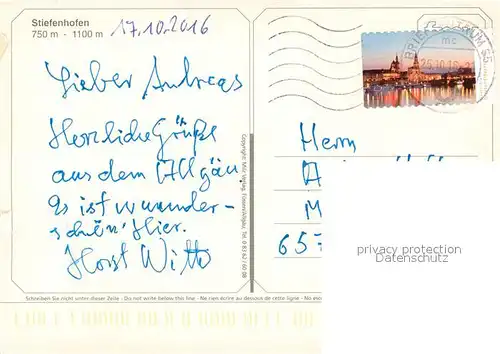 Stiefenhofen
750 m - 1100 m
17.10.2016
Lieber Andreas
Herzliche Grüße
aus dem Allgäu.
Es ist wunder-
schön hier.
Horst
Herrn
A
M
65
privacy protection
Datenschutz
Schreiben Sie nicht unter dieser Zeile - Do not write below this line - Ne rien écrire au dessous de cette ligne - No